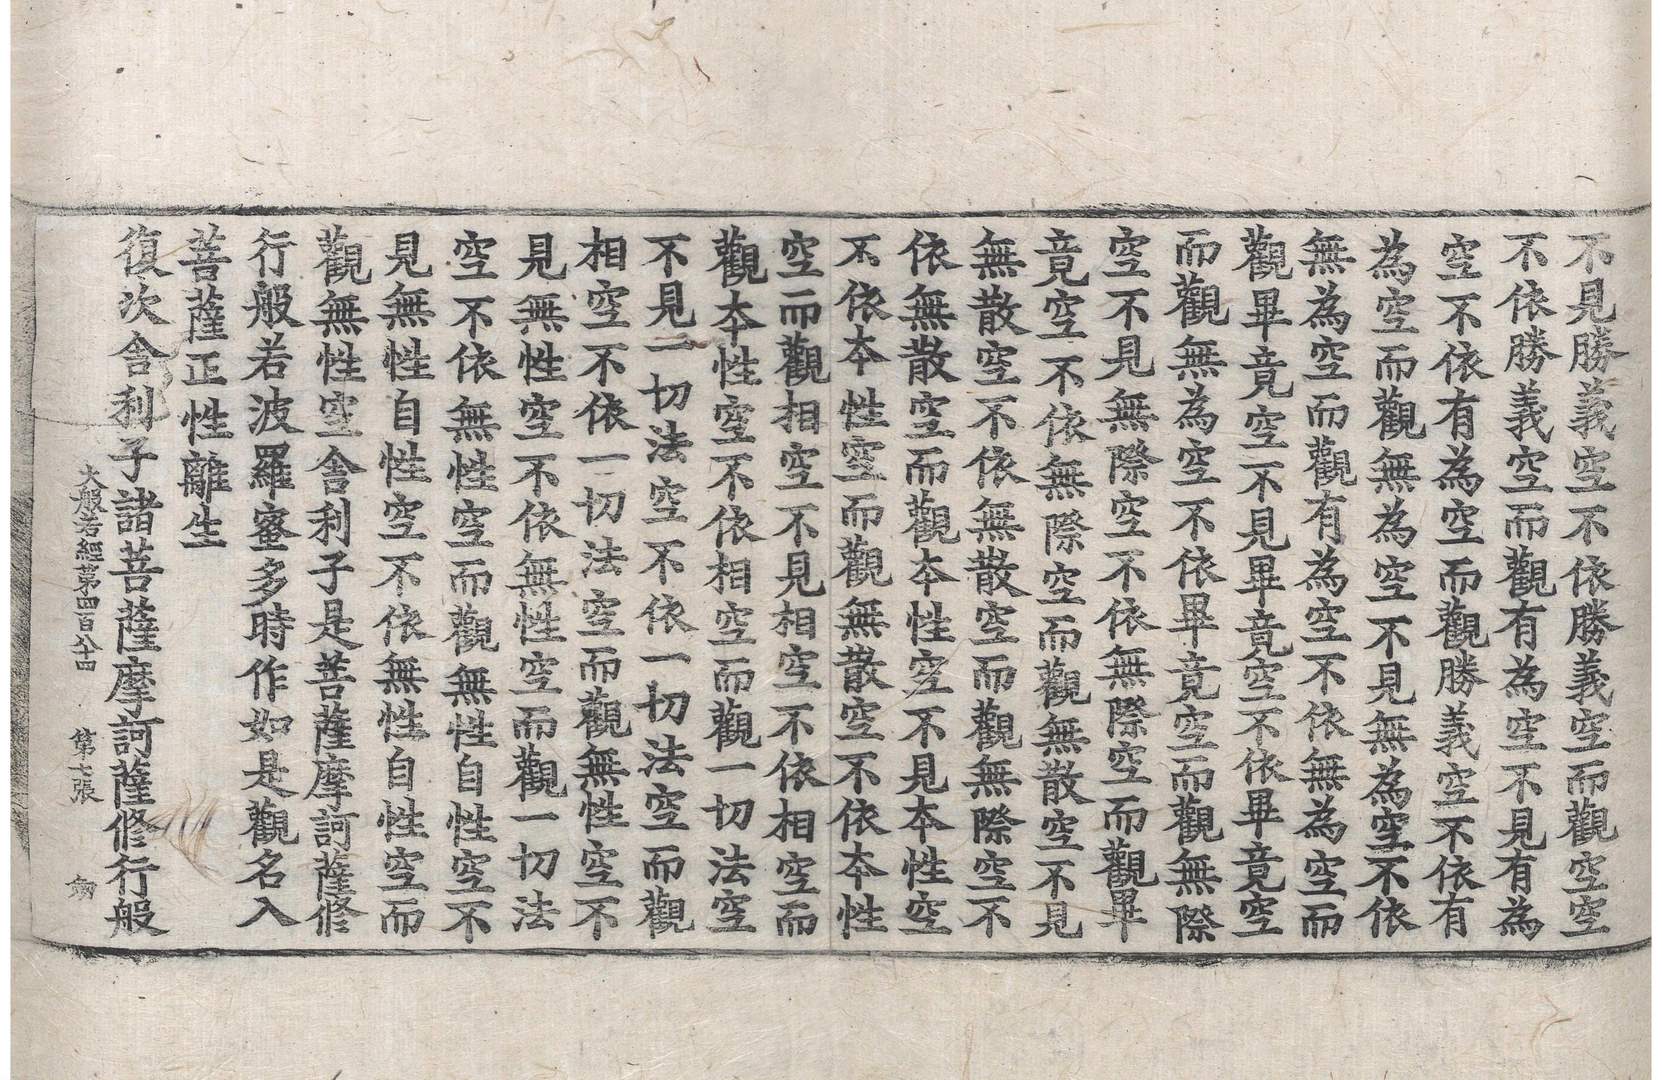 不見勝義空不依勝義空而觀空空
不依勝義空而觀有為空不見有為
空不依有為空而觀勝義空不依有
為空而觀無為空不見無為空不依
無為空而觀有為空不依無為空而
觀畢竟空不見畢竟空不依畢竟空
而觀無為空不依畢竟空而觀無際
空不見無際空不依無際空而觀畢
竟空不依無際空而觀無散空不見
無散空不依無散空而觀無際空不
依無散空而觀本性空不見本性空
不依本性空而觀無散空不依本性
空而觀相空不見相空不依相空而
觀本性空不依相空而觀一切法空
不見一切法空不依一切法空而觀
相空不依一切法空而觀無性空不
見無性空不依無性空而觀一切法
空不依無性空而觀無性自性空不
見無性自性空不依無性自性空而
觀無性空舍利子是菩薩摩訶薩修
行般若波羅蜜多時作如是觀名入
菩薩正性離生
復次舍利子諸菩薩摩訶薩修行般
大般若經第四百八十四 第七張 劒